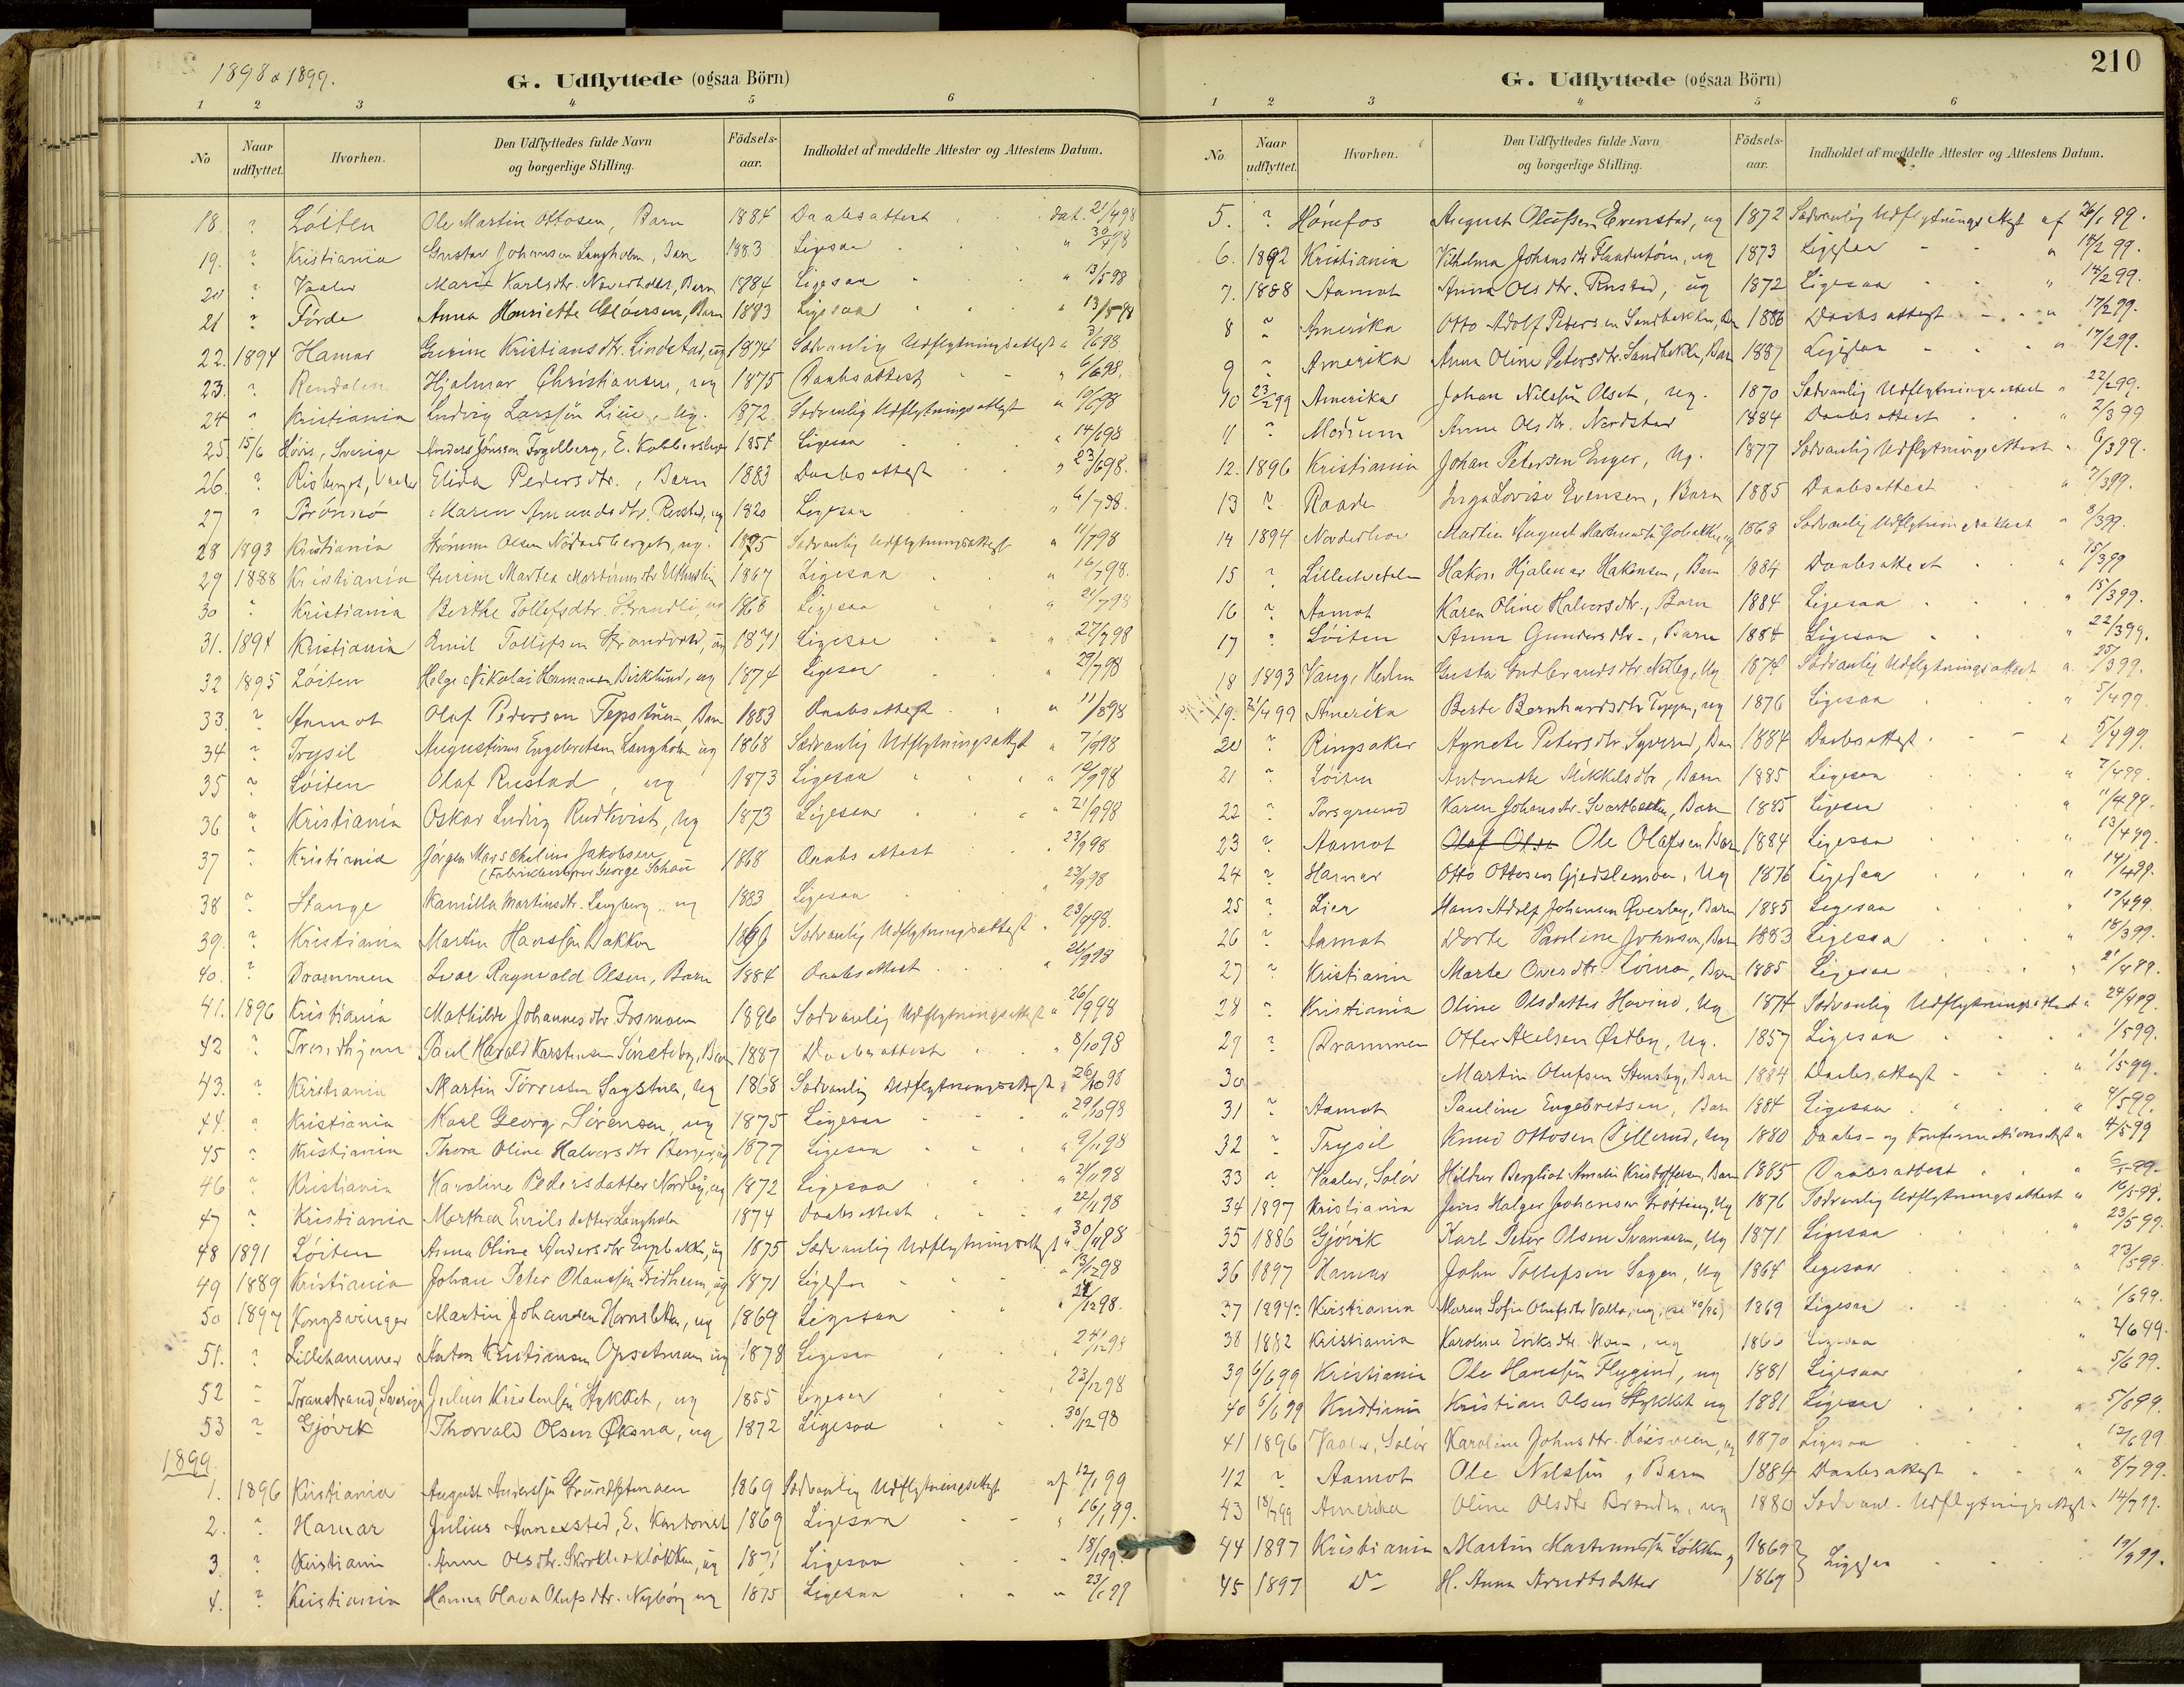 1898 & 1899.
G. Udflyttede (ogsaa Börn)
1 2 3 4 5 6
No Naar udflyttet. Hvorhen. Den Udflyttedes fulde Navn og borgerlige Stilling. Födsels-aar. Indholdet af meddelte Attester og Attestens Datum.
18. ? Löiten Ole Martin Ottosen, Barn 1884 Daabsattest dat. 21/4 98
19. ? Kristiania Gustav Johansen Langholm, Barn 1883 Ligesaa " 30/4 98
20 ? Vaaler Marie Karlsdtr. Barn 1884 Ligesaa " 13/5 98
21 ? Förde Anna Henriette Barn 1883 Ligesaa " 13/5 98
22. 1894 Hamar Gurine Kristiansdtr. Lindstad, ug 1874 Sædvanlig Udflytningsattest " 3/6 98
23. ? Rendalen Hjalmar Christiansen, ug 1875 Daabsattest " 6/6 98.
24 " Kristiania Ludvig Larssön Lien, ug. 1872 Sædvanlig Udflytningsattest " 10/6 98
25. 15/6 Sverige Anders Jönsson E. 1854 Ligesaa " 14/6 98
26. ? Vaaler Elida Pedersdtr., Barn 1883 Daabsattest " 23/6 98.
27 " Brönnö Maren Amundsdtr. Rustad, ug 1820 Ligesaa " 6/7 98.
28 1893 Kristiania Olsen ug. 1875 Sædvanlig Udflytningsattest " 11/7 98
29 1888 Kristiania Gurine Martea Martinusdtr 1867 Ligesaa " 16/7 98.
30 " Kristiania Berthe Tollefsdtr. Strandli, ug 1868 Ligesaa " 21/7 98
31. 1894 Kristiania Emil Tollefsen ug 1871 Ligesaa " 27/7 98
32 1895 Löiten Helge Nikolai Hermansen Birklund, ug 1874 Ligesaa " 29/7 98
33. ? Aamot Olaf Pedersen Barn 1883 Daabsattest " 11/8 98
34 ? Trysil Augustinus Engebretsen Langholm ug 1868 Sædvanlig Udflytningsattest " 7/9 98
35 ? Löiten Olaf Rustad, ug 1873 Ligesaa " 10/9 98
36 ? Kristiania Oskar Ludvig Rudkvist, ug 1873 Ligesaa " 21/9 98
37 " Kristiania Jörgen Marschelius Jakobsen 1868 Daabsattest " 23/9 98
George Schou
38 ? Stange Kamilla Martinsdtr. Langberg ug 1883 Ligesaa " 23/9 98
39. ? Kristiania Martin Hanssen Bakken Sædvanlig Udflytningsattest " 23/9 98.
40. ? Drammen Ivar Ragnvald Olsen, Barn 1884 Daabsattest " 26/9 98
41. 1896 Kristiania Mathilde Johannesdtr Fosmoen 1896 Sædvanlig Udflytningsattest " 26/9 98
42 ? Trondhjem Paul Harald Karstensen Barn 1887 Daabsattest " 8/10 98
43. ? Kristiania Martin Torressen Sagstuen, ug 1868 Sædvanlig Udflytningsattest " 26/10 98
44. " Kristiania Karl Georg Sörensen, ug 1875 Ligesaa " 29/10 98
45 ? Kristiania Thora Oline Halvorsdtr Berger, ug 1877 Ligesaa " 9/11 98
46 ? Kristiania Karoline Pedersdatter Nordby, ug 1872 Ligesaa " 21/11 98
47 ? Kristiania Marthea Eriksdatter Langholm 1874 Daabsattest " 22/11 98
48 1891 Löiten Anna Oline Andersdtr ug 1875 Sædvanlig Udflytningsattest " 30/11 98
49 1889 Kristiania Johan Peter Olaussen Fridheim, ug 1871 Ligesaa " 13/12 98
50 1897 Kongsvinger Martin Johansen ug 1869 Ligesaa 12 98.
51. ? Lillehammer Anton Kristiansen Opsetmoen ug 1878 Ligesaa 12 98
52 " Transtrand, Sverige Julius Stykket, ug 1855 Ligesaa " 23/12 98
53 ? Gjövik Thorvald Olsen Øksna, ug 1872 Ligesaa " 30/12 98
1899.
1. 1896 Kristiania August Grundsetmoen 1869 Sædvanlig Udflytningsattest af 12/1 99
2. ? Hamar Julius E. Kontorist 1869 Ligesaa " 16/1 99.
3 ? Kristiania Anne Olsdtr. ug 1871 Ligesaa " 18/1 99.
4. ? Kristiania Hanna Olava Olufsdtr. Nyborg ug 1875 Ligesaa " 23/1 99
210
G. Udflyttede (ogsaa Börn)
1 2 3 4 5 6
No Naar udflyttet. Hvorhen. Den Udflyttedes fulde Navn og borgerlige Stilling. Födsels-aar. Indholdet af meddelte Attester og Attestens Datum.
5. ? Hönefos August Olufsen Evenstad, ug 1872 Sædvanlig Udflytningsattest af 26/1 99.
6. 1892 Kristiania Vilhelma Johansdtr ug 1873 Ligesaa " 14/2 99.
7. 1888 Aamot Anna Olsdtr. Rustad, ug 1872 Ligesaa " 14/2 99.
8 ? Amerika Otto Adolf Pedersen Sandbakken, Bn 1886 Daabsattest " 17/2 99.
9 ? Amerika Anna Oline Petersdtr. Sandbakk, Barn 1887 Ligesaa " 17/2 99.
10 23/2 99 Amerika Johan Nilssen Olset, ug. 1870 Sædvanlig Udflytningsattest " 22/2 99.
11 ? Modum Anne Olsdtr. Nordstad 1884 Daabsattest " 2/3 99
12. 1896 Kristiania Johan Petersen Enger, ug. 1877 Sædvanlig Udflytningsattest " 6/3 99.
13 ? Raade Inga Lovise Evensen, Barn 1885 Daabsattest " 7/3 99.
14 1894 Norderhov Martin August ug 1868 Sædvanlig Udflytningsattest " 8/3 99.
15 ? Lillehetalen Hakon Hjalmar Hakonsen, Barn 1884 Daabsattest " 15/3 99
16 ? Aamot Karen Oline Halvorsdtr., Barn 1884 Ligesaa " 15/3 99.
17 ? Löiten Anna Gundersdtr., Barn 1884 Ligesaa " 22/3 99.
18 1893 Vang, Hedm Gusta Gudbrandsdtr Nordby, ug 1874 Sædvanlig Udflytningsattest " 25/3 99.
19. 21/4 99 Amerika Berte Bernhardsdtr Teppen, ug 1876 Ligesaa " 5/4 99
20 ? Ringsaker Agnete Petersdtr. Syverud, Barn 1884 Daabsattest " 5/4 99.
21 ? Löiten Antonette Mikkelsdtr, Barn 1885 Ligesaa " 7/4 99.
22 ? Porsgrund Karen Johansdtr. Svartbekken, Barn 1885 Ligesaa " 11/4 99.
23 ? Aamot Olaf Olse Ole Olafsen Barn 1884 Ligesaa " 13/4 99
24 ? Hamar Otto Ottosen Gjedslemoen, ug 1876 Ligesaa " 14/4 99.
25 ? Lier Hans Adolf Johansen Øverby, Barn 1885 Ligesaa " 17/4 99.
26 ? Aamot Dorte Pauline Johnsen, Barn 1883 Ligesaa " 18/3 99.
27 ? Kristiania Marte Barn 1885 Ligesaa " 21/4 99.
28 " Kristiania Oline Olsdatter Hovind, ug 1874 Sædvanlig Udflytningsattest " 24/4 99.
29 ? Drammen Otter Axelsen Østby, ug. 1857 Ligesaa " 1/5 99.
30 Martin Olufsen Stensby, Barn 1884 Daabsattest " 1/5 99.
31 ? Aamot Pauline Engebretsen, Barn 1884 Ligesaa " 4/5 99.
32 " Trysil Knud Ottosen ug 1880 Daabs- og Konfirmationsattest " 4/5 99
33 " Vaaler, Solör Hildur Bergliot Amalie Kristoffersen, Barn 1885 Daabsattest " 6/5 99.
34 1897 Kristiania Jens Holger Johansen Grötting, ug 1876 Sædvanlig Udflytningsattest " 16/5 99.
35 1886 Gjövik Karl Peter Olsen Svanaasen, ug 1871 Ligesaa " 23/5 99.
36 1897 Hamar John Tollefsen Sagen, ug 1864 Ligesaa " 23/5 99.
37 1894? Kristiania Maren Sofie Olufsdtr Valla, ug, (se 40/96) 1869 Ligesaa " 1/6 99.
38 1882 Kristiania Karoline Eriksdtr. Moen, ug 1866 Ligesaa " 2/6 99.
39 6/6 99 Kristiania Ole Hanssen Flygind, ug 1881 Ligesaa " 5/6 99.
40 6/6 99 Kristiania Kristian Olsen Stykket ug 1881 Ligesaa " 5/6 99.
41 1896 Vaaler, Solör Karoline Johnsdtr. ug 1870 Ligesaa " 12/6 99
42 ? Aamot Ole Nilssen, Barn 1884 Daabsattest " 8/7 99.
43 18/7 99 Amerika Oline Olsdtr Brænden, ug 1880 Sædvanl. Udflytningsattest " 14/7 99.
44 1897 Kristiania Martin Martinussen Løkken 1869 } Ligesaa 19/9 99.
45 1897 Do H. Anna Arndtsdatter 1869